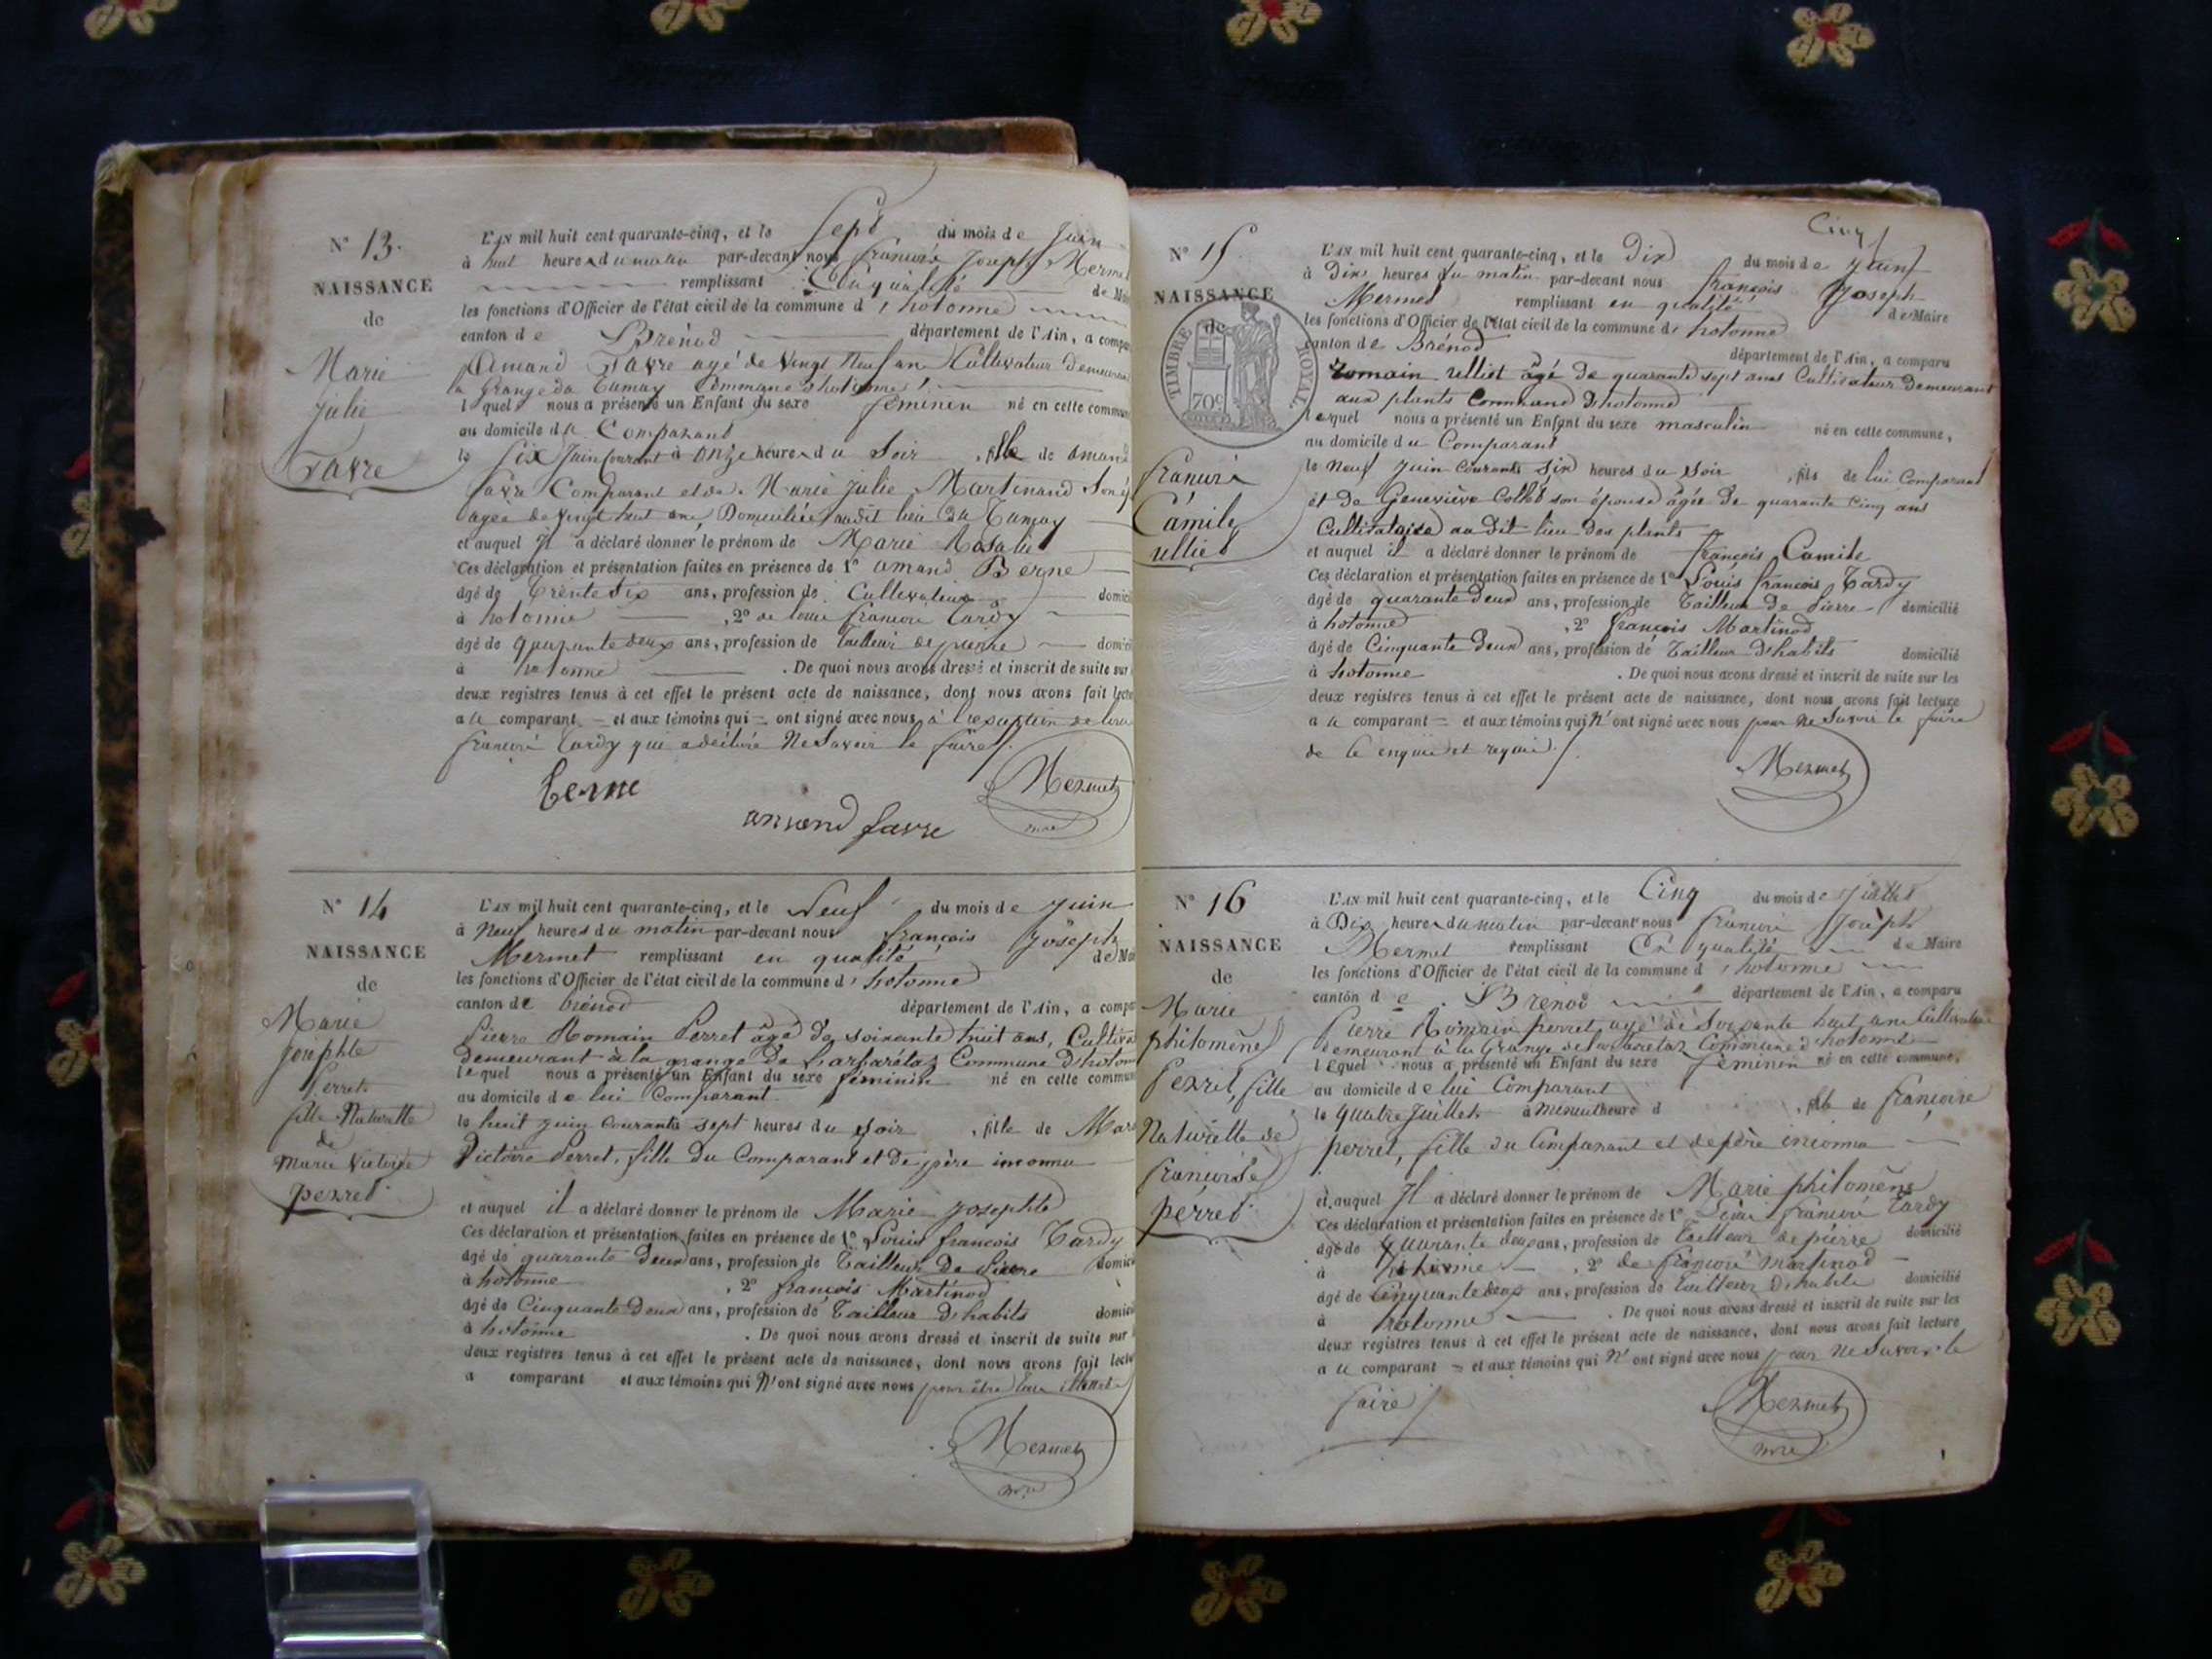 N° 13.
NAISSANCE
de
Marie
Julie
Favre
L'AN mil huit cent quarante-cinq, et le Sept du mois de Juin
à huit heures du matin par-devant nous françois Joseph Mermet
remplissant En qualité de Mai
les fonctions d'Officier de l'état civil de la commune d'hotonne
canton de Brénod département de l'Ain, a compa
Amand Favre agé de vingt Neuf an Cultivateur demeurant
la Grange du Tumay Commune d'hotonne
lequel nous a présenté un Enfant du sexe féminin né en cette commun
au domicile du Comparant
le Six Juin Courant à onze heures du Soir, fille de amand
favre Comparant et de Marie Julie Martinand Son
agée de vingt huit ans, Domiciliée audit lieu du Tumay
et auquel Il a déclaré donner le prénom de Marie Rosalie
Ces déclaration et présentation faites en présence de 1° amand Berne
âgé de Trente Six ans, profession de Cultivateur domici
à hotonne, 2° de louis françois Tardy
âgé de quarante deux ans, profession de tailleur de pierre domici
à hotonne. De quoi nous avons dressé et inscrit de suite sur
deux registres tenus à cet effet le présent acte de naissance, dont nous avons fait lectu
a u comparant et aux témoins qui ont signé avec nous à l'exception de louis
françois Tardy qui a déclaré Ne Savoir le faire
berne
amand favre
Mermet
mre
N° 14
NAISSANCE
de
Marie
Josephte
Perret
fille Naturelle
de
Marie Victoire
perret
L'AN mil huit cent quarante-cinq, et le Neuf du mois de Juin
à Neuf heures du matin par-devant nous françois Joseph
Mermet remplissant en qualité de Mai
les fonctions d'Officier de l'état civil de la commune d'hotonne
canton de brénod département de l'Ain, a compa
Pierre Romain Perret âgé de soixante huit ans, Cultiva
demeurant à la grange de Commune d'hotonn
lequel nous a présenté un Enfant du sexe féminin né en cette commun
au domicile de lui Comparant
le huit juin courant à sept heures du soir, fille de Mar
Victoire Perret, fille du Comparant et de père inconnu
et auquel il a déclaré donner le prénom de Marie Josephte
Ces déclaration et présentation faites en présence de 1° Louis françois Tardy
âgé de quarante deux ans, profession de Tailleur De Pierre domici
à hotonne, 2° françois Martinod
âgé de Cinquante deux ans, profession de Tailleur D'habits domici
à hotonne. De quoi nous avons dressé et inscrit de suite sur
deux registres tenus à cet effet le présent acte de naissance, dont nous avons fait lectu
a comparant et aux témoins qui n'ont signé avec nous pour être
Mermet
mre
Cinq
N° 15
NAISSANCE
de
TIMBRE ROYAL
70c
françois
Camile
ulliet
L'AN mil huit cent quarante-cinq, et le Dix du mois de Juin
à Dix heures du matin par-devant nous françois Joseph
Mermet remplissant en qualité de Maire
les fonctions d'Officier de l'état civil de la commune d'hotonne
canton de Brénod département de l'Ain, a comparu
romain ulliet âgé de quarante sept ans Cultivateur demeurant
aux plants Commune D'hotonne
lequel nous a présenté un Enfant du sexe masculin né en cette commune,
au domicile du Comparant
le Neuf Juin Courant à Six heures du soir, fils de lui Comparant
et de Geneviève Collet son épouse âgée de quarante Cinq ans
Cultivatrice au dit lieu des plants
et auquel il a déclaré donner le prénom de françois Camile
Ces déclaration et présentation faites en présence de 1° Louis françois Tardy
âgé de quarante Deux ans, profession de Tailleur De Pierre domicilié
à hotonne, 2° françois Martinod
âgé de Cinquante Deux ans, profession de Tailleur D'habits domicilié
à hotonne. De quoi nous avons dressé et inscrit de suite sur les
deux registres tenus à cet effet le présent acte de naissance, dont nous avons fait lecture
a u comparant et aux témoins qui n'ont signé avec nous pour ne Savoir le faire
de ce enquis et requis
Mermet
N° 16
NAISSANCE
de
Marie
philomène
Perret, fille
Naturelle de
francoise
perret
L'AN mil huit cent quarante-cinq, et le Cinq du mois de Juillet
à Dix heures du matin par-devant nous françois Joseph
Mermet remplissant En qualité de Maire
les fonctions d'Officier de l'état civil de la commune d'hotonne
canton de Brénod département de l'Ain, a comparu
Pierre Romain perret agé de Soixante huit ans Cultivateur
demeurant à la Grange de Commune d'hotonne
lequel nous a présenté un Enfant du sexe féminin né en cette commune,
au domicile de lui Comparant
le quatre Juillet à minuit heure d, fille de françoise
perret, fille du Comparant et de père inconnu
et auquel Il a déclaré donner le prénom de Marie philomène
Ces déclaration et présentation faites en présence de 1° Louis françois Tardy
âgé de quarante deux ans, profession de tailleur de pierre domicilié
à hotonne, 2° de françois Martinod
âgé de Cinquante deux ans, profession de tailleur d'habits domicilié
à hotonne. De quoi nous avons dressé et inscrit de suite sur les
deux registres tenus à cet effet le présent acte de naissance, dont nous avons fait lecture
a u comparant et aux témoins qui n'ont signé avec nous pour ne Savoir le
faire
Mermet
mre